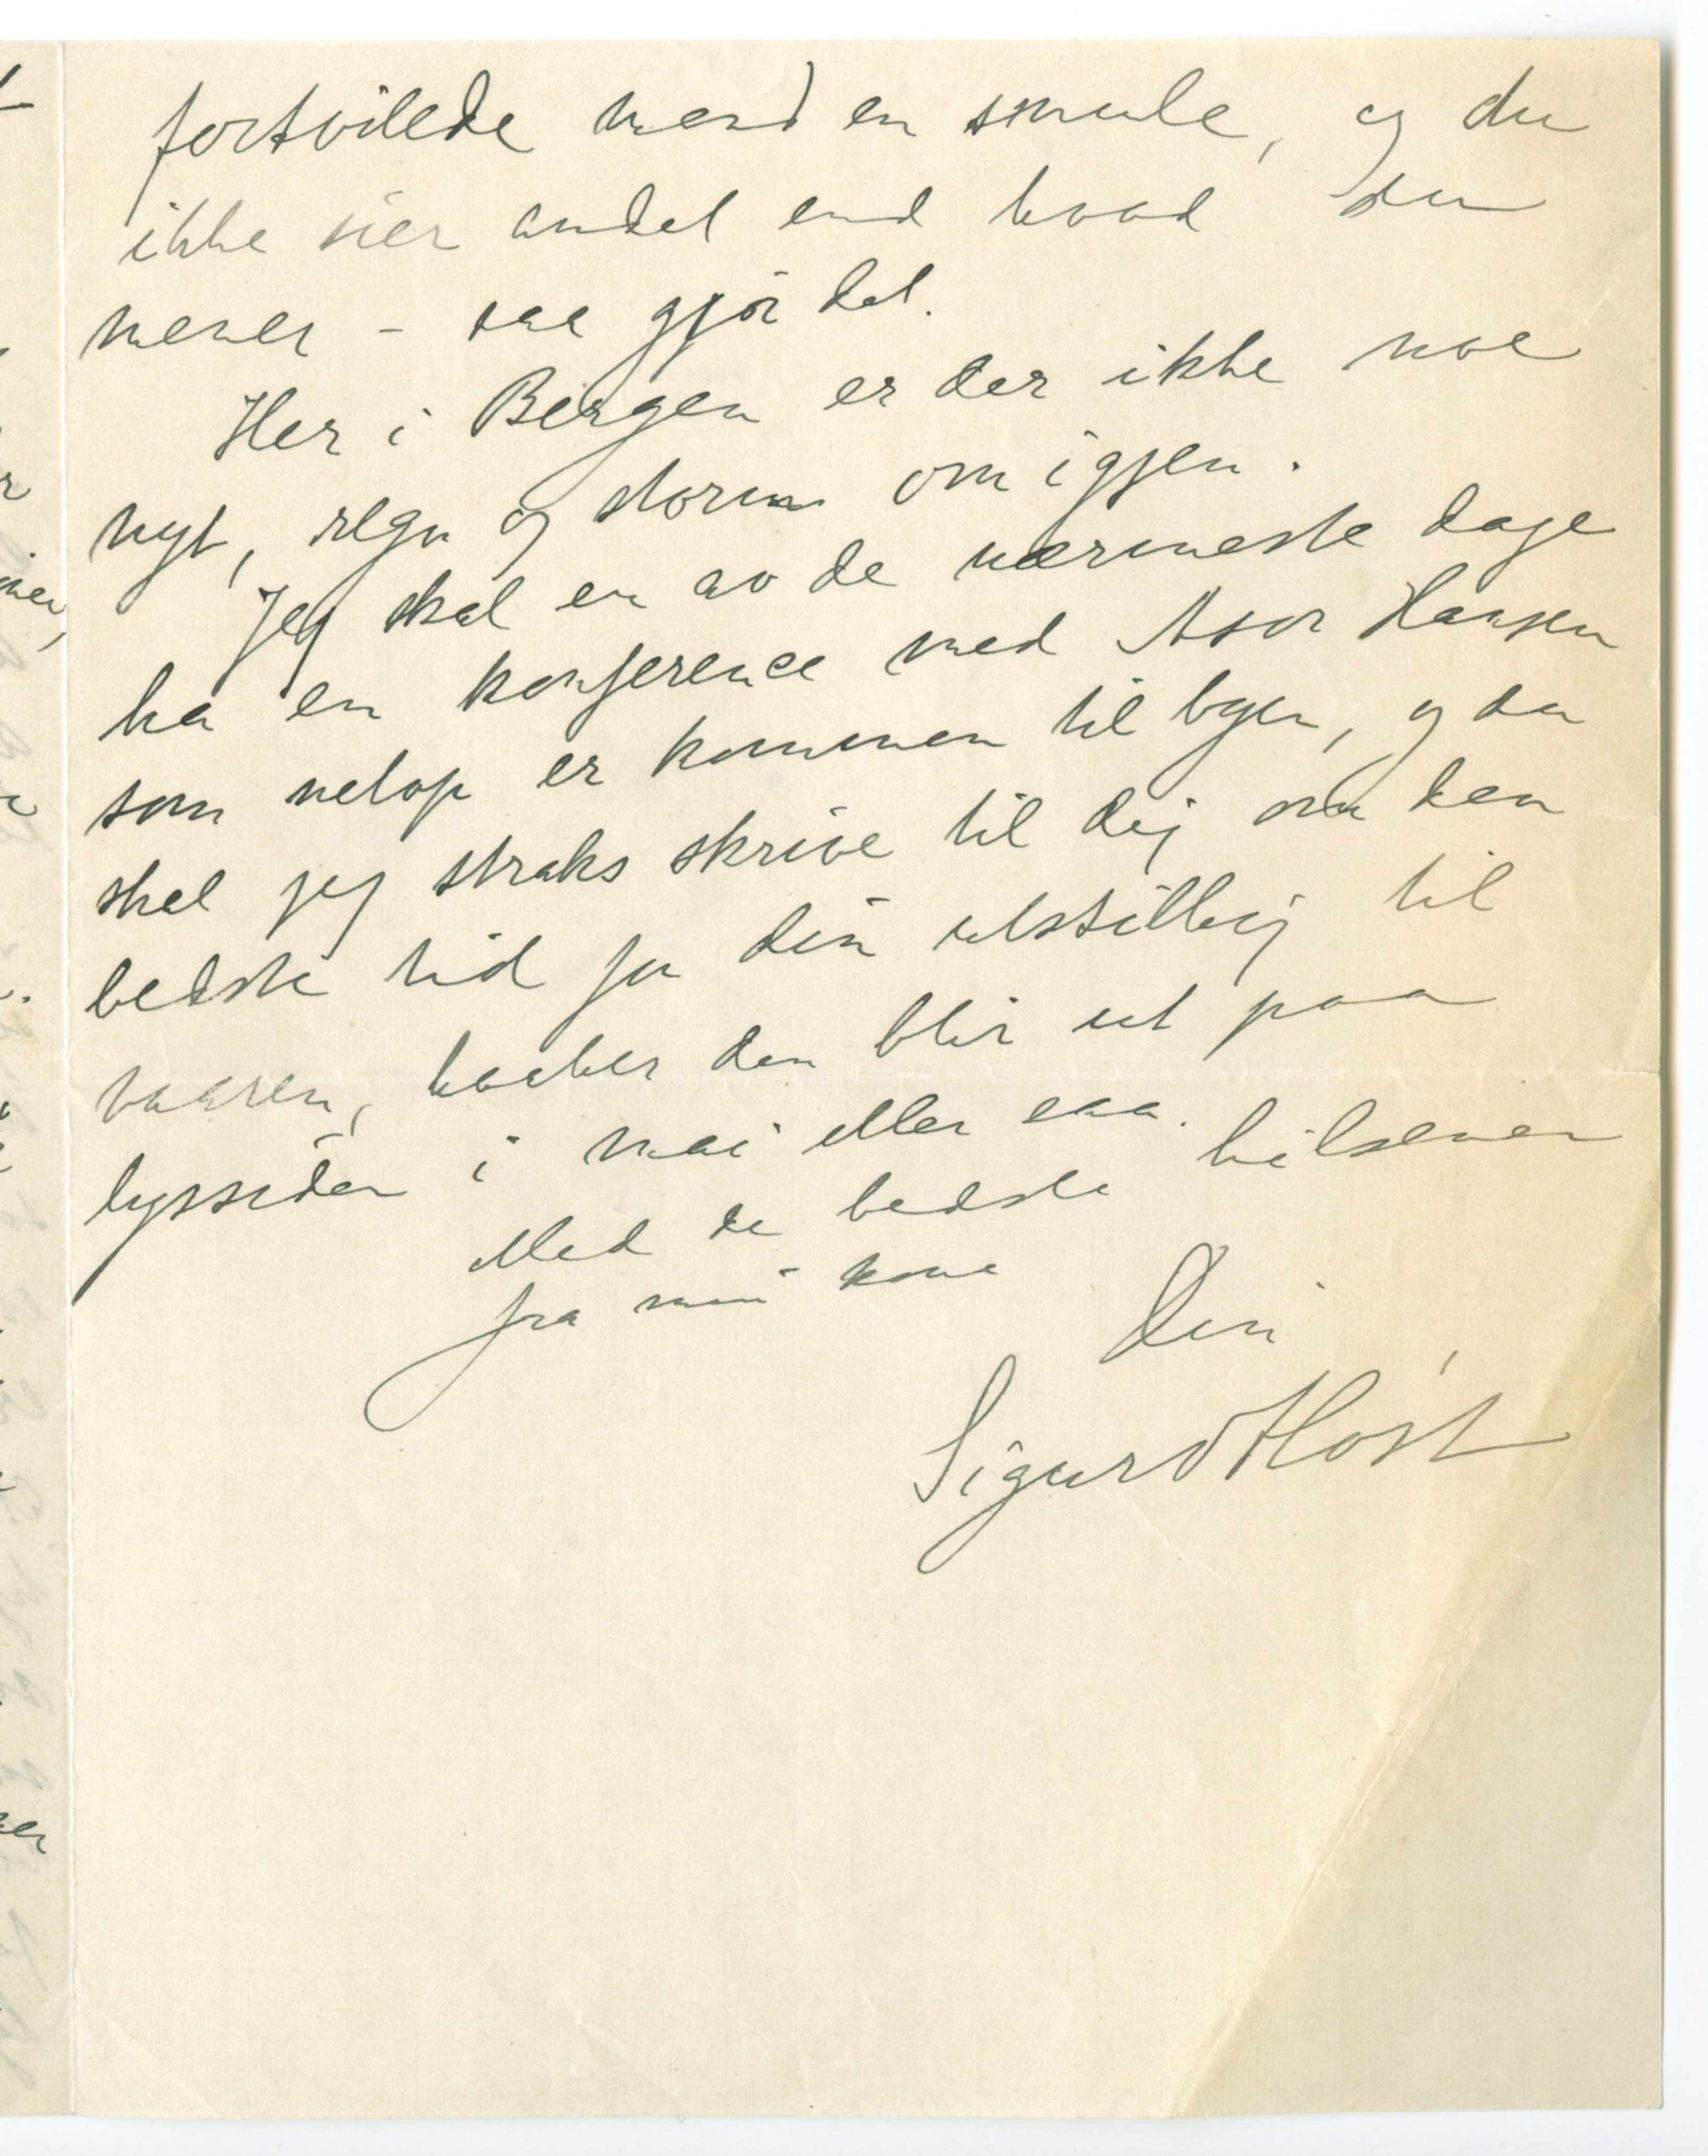 fortvilede mand en smule, og du
ikke sier andet end hvad du
mener - saa gjör det.
Her i Bergen er der ikke noe
nyt, regn og storm om igjen.
Jeg skal en av de nærmeste dage
ha en konference med Asor Hansen
som netop er kommen til byen, og da
skal jeg straks skrive til dig om den
bedste tid for din utstilling til
vaaren, haaber den blir ut paa
lyssiden i mai eller saa.
Med de bedste hilsener
fra min kone
Din
Sigurd Höst